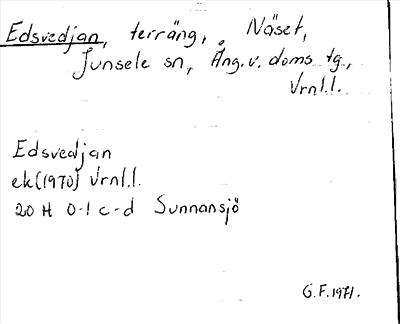 Edsvedjan, terräng, Näset,
Junsele sn, Ång. v. doms tg.,
Vrnl.l.
Edsvedjan
ek(1970) Vrnl.l.
20 H 0-1 c-d Sunnansjö
G.F. 1971.